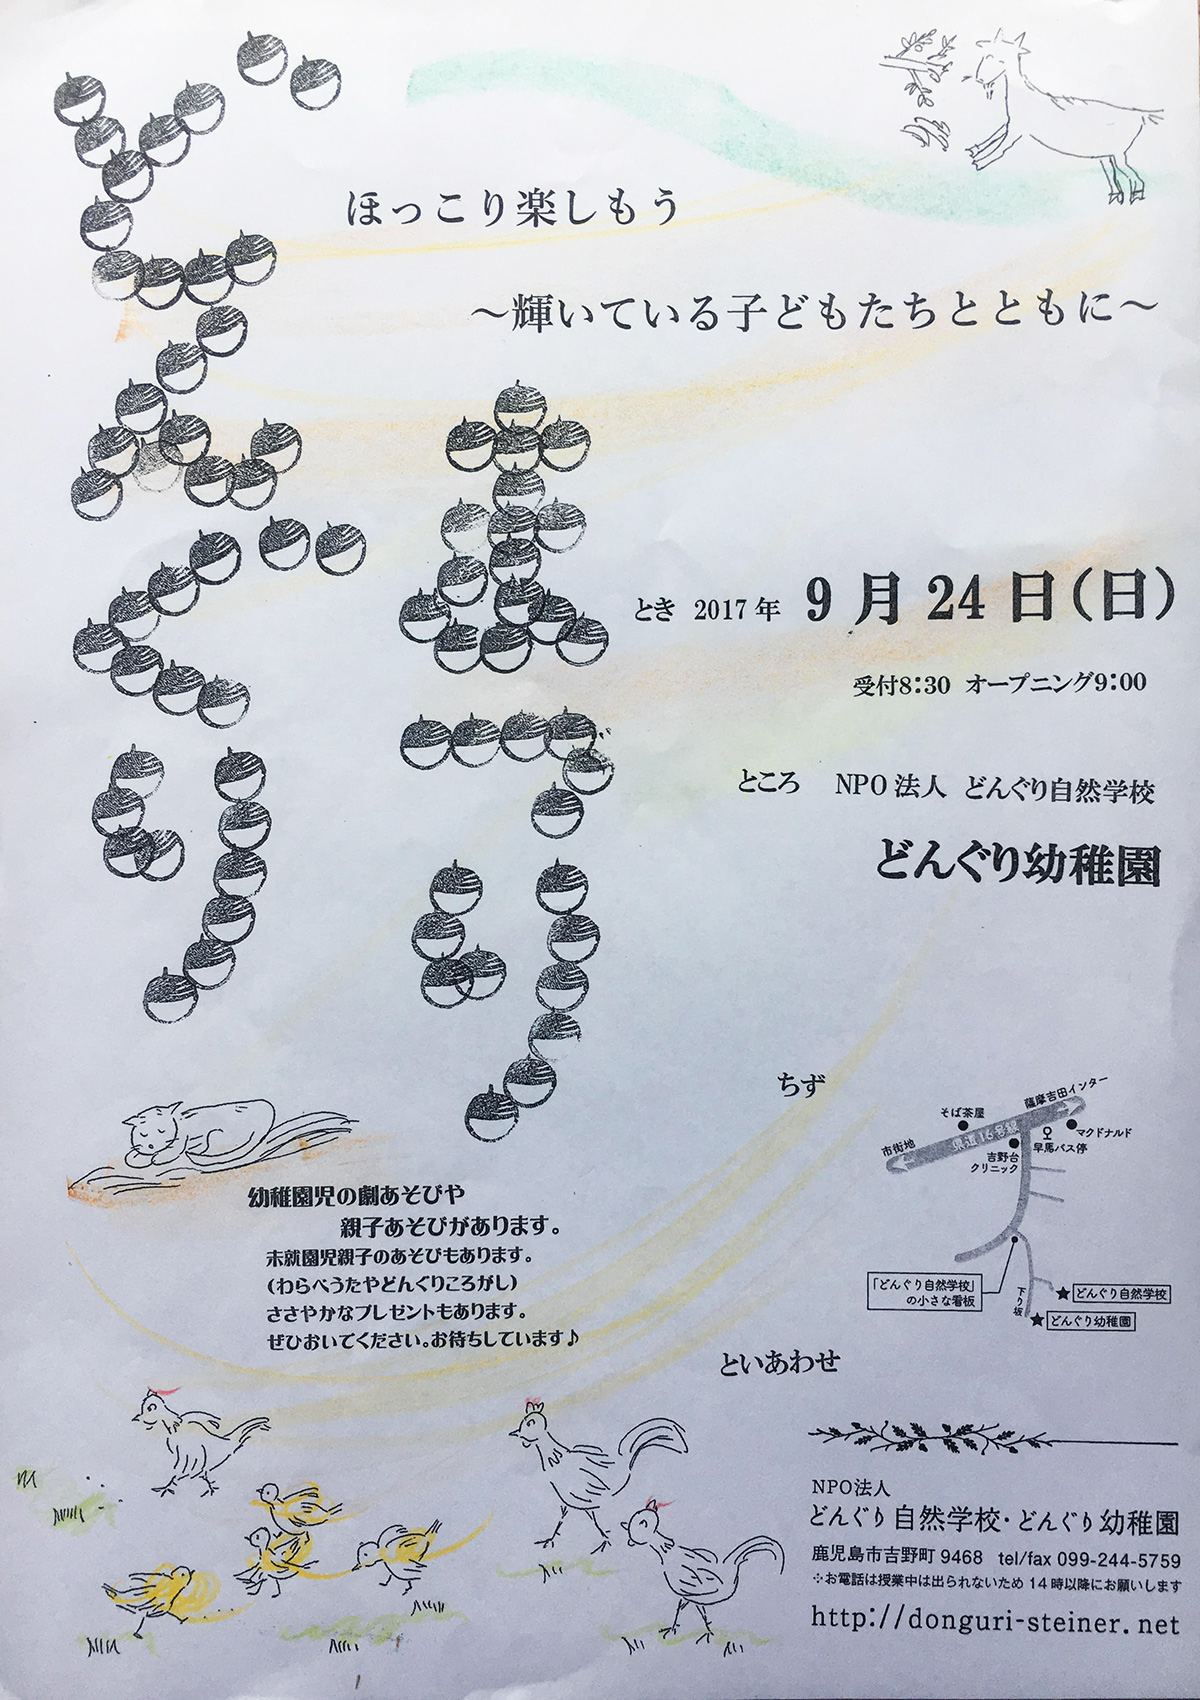 どんぐり
まつり
ほっこり楽しもう
～輝いている子どもたちとともに～
とき 2017年 9月24日(日)
受付8:30 オープニング9:00
ところ NPO法人 どんぐり自然学校
どんぐり幼稚園
ちず
薩摩吉田インター
そば茶屋
マクドナルド
県道16号線
早馬バス停
市街地
吉野台
クリニック
「どんぐり自然学校」
の小さな看板
下り坂
どんぐり自然学校
どんぐり幼稚園
幼稚園児の劇あそびや
親子あそびがあります。
未就園児親子のあそびもあります。
(わらべうたやどんぐりころがし)
ささやかなプレゼントもあります。
ぜひおいてください。お待ちしています♪
といあわせ
NPO法人
どんぐり自然学校・どんぐり幼稚園
鹿児島市吉野町9468 tel/fax 099-244-5759
※お電話は授業中は出られないため14時以降にお願いします
http://donguri-steiner.net